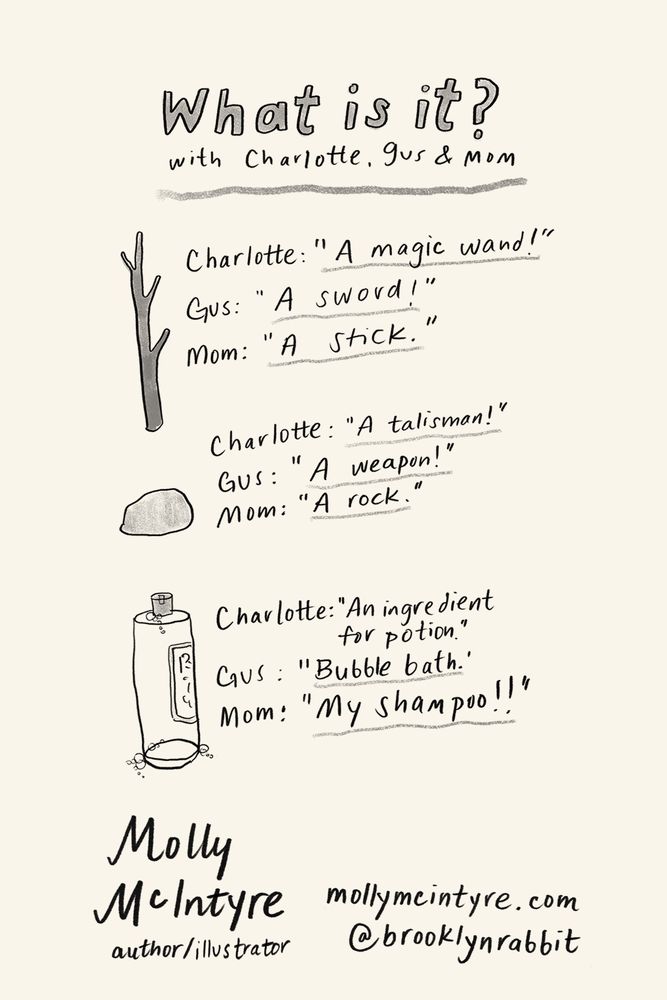 What is it?
with Charlotte, Gus & Mom
Charlotte: "A magic wand!"
Gus: "A sword!"
Mom: "A stick."
Charlotte: "A talisman!"
Gus: "A weapon!"
Mom: "A rock."
Charlotte: "An ingredient
for potion."
Gus: "Bubble bath.'
Mom: "My shampoo!!"
Molly
McIntyre
author/illustrator
mollymcintyre.com
@brooklynrabbit